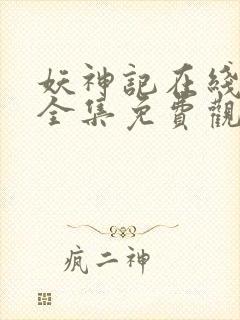 妖神記在綫
全集免費觀
瘋二神